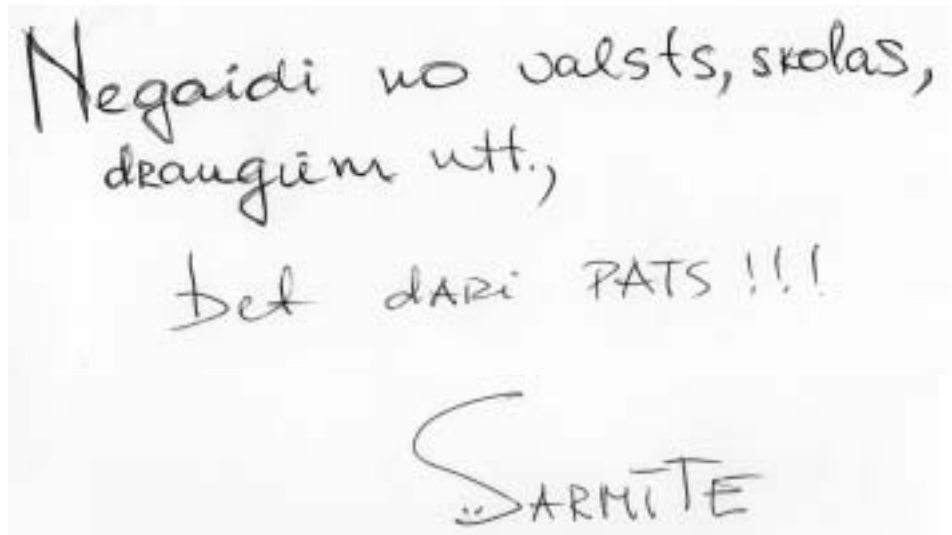 Negaidi no valsts, skolas,
draugiem utt.,
bet dari PATS!!!
SARMĪTE